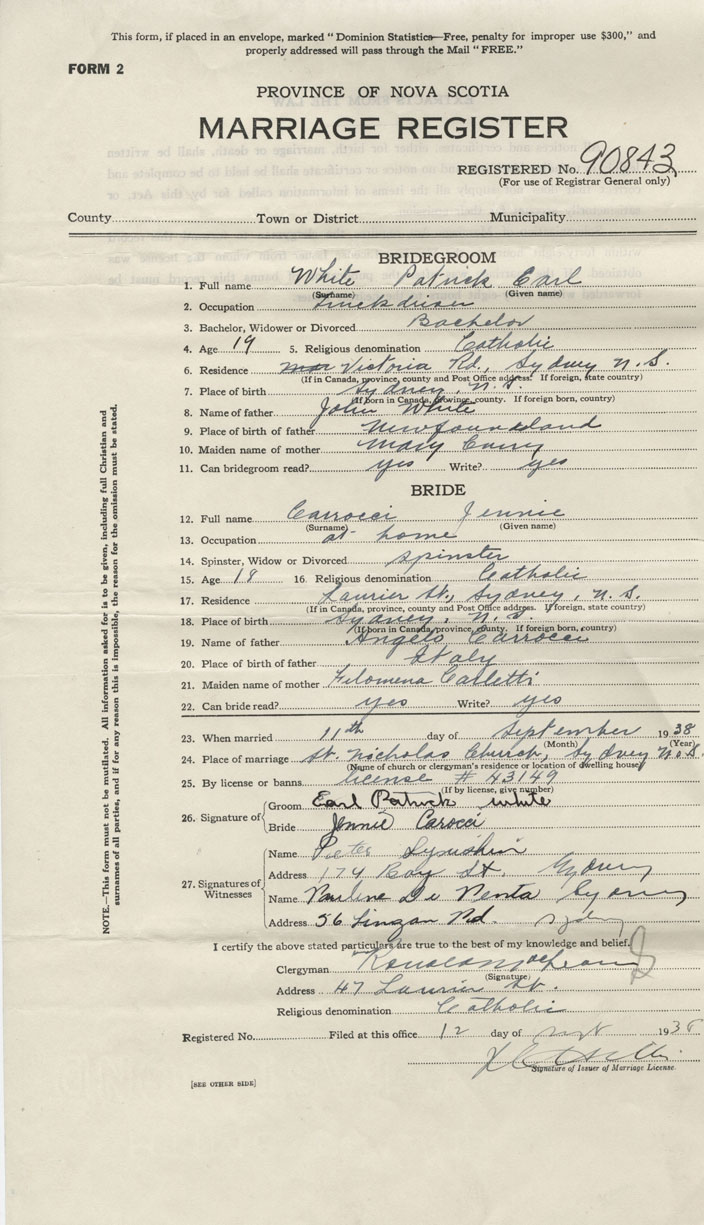 This form, if placed in an envelope, marked "Dominion Statistics—Free, penalty for improper use $300," and
properly addressed will pass through the Mail "FREE."
FORM 2
PROVINCE OF NOVA SCOTIA
MARRIAGE REGISTER
REGISTERED No. 90843
(For use of Registrar General only)
County Town or District Municipality
BRIDEGROOM
1. Full name White Patrick Earl
(Surname) (Given name)
2. Occupation Truck driver
3. Bachelor, Widower or Divorced Bachelor
4. Age 19 5. Religious denomination Catholic
6. Residence Victoria Rd, Sydney N.S.
(If in Canada, province, county and Post Office address. If foreign, state country)
7. Place of birth Sydney, N.S.
(If born in Canada, province, county. If foreign born, country)
8. Name of father John White
9. Place of birth of father Newfoundland
10. Maiden name of mother Mary
11. Can bridegroom read? yes Write? yes
BRIDE
12. Full name Carrocci Jennie
(Surname) (Given name)
13. Occupation at home
14. Spinster, Widow or Divorced Spinster
15. Age 18 16. Religious denomination Catholic
17. Residence Laurier St, Sydney, N.S.
(If in Canada, province, county and Post Office address. If foreign, state country)
18. Place of birth Sydney, N.S
(If born in Canada, province, county. If foreign born, country)
19. Name of father Angelo Carrocci
20. Place of birth of father Italy
21. Maiden name of mother Filomena Carletti
22. Can bride read? yes Write? yes
23. When married 11th day of September 1938
(Month) (Year)
24. Place of marriage St. Nicholas Church, Sydney N.S.
(Name of church or clergyman's residence or location of dwelling house)
25. By license or banns license # 43149
(If by license, give number)
26. Signature of
Groom Earl Patrick white
Bride Jennie Carocci
27. Signatures of Witnesses
Name Peter
Address 174 Bay St. Sydney
Name Pauline De Penta Sydney
Address 56 Lingan Rd. Sydney
I certify the above stated particulars are true to the best of my knowledge and belief.
Clergyman
(Signature)
Address 47 Laurier St.
Religious denomination Catholic
Registered No. Filed at this office 12 day of Sept 1938
Signature of Issuer of Marriage License.
[SEE OTHER SIDE]
NOTE.—This form must not be mutilated. All information asked for is to be given, including full Christian and
surnames of all parties, and if for any reason this is impossible, the reason for the omission must be stated.